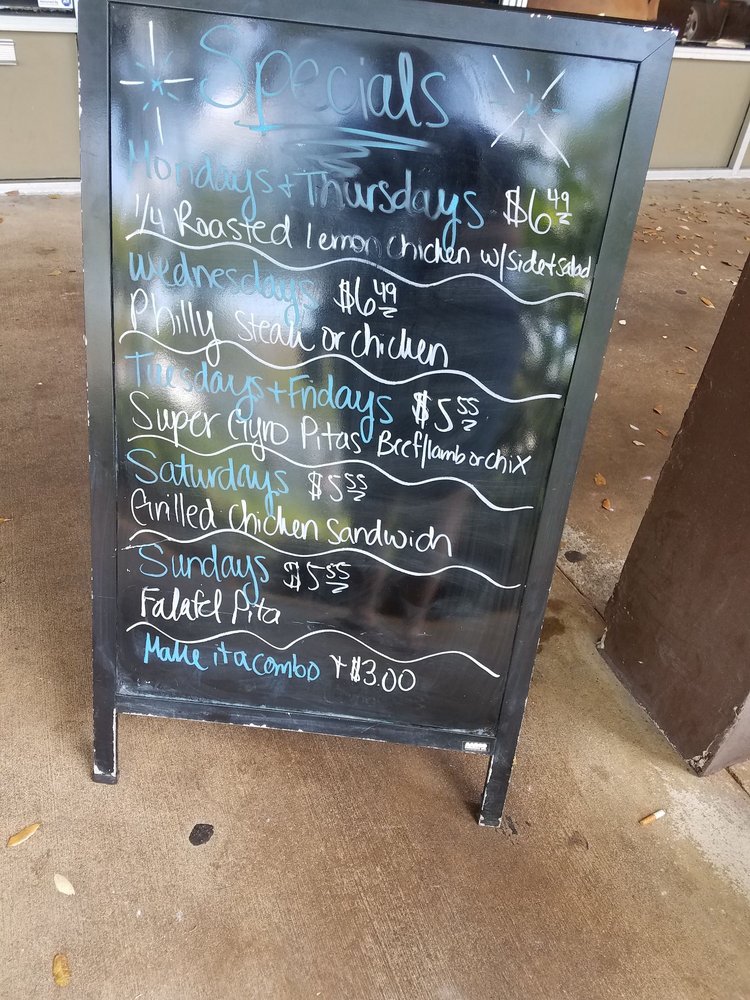 Specials
Mondays + Thursdays $6.49
1/4 Roasted lemon chicken w/side+salad
Wednesdays $6.49
Philly steak or chicken
Tuesdays + Fridays $5.55
Super Gyro Pitas Beef/lamb or chix
Saturdays $5.55
Grilled Chicken Sandwich
Sundays $5.55
Falafel Pita
Make it a combo + $3.00